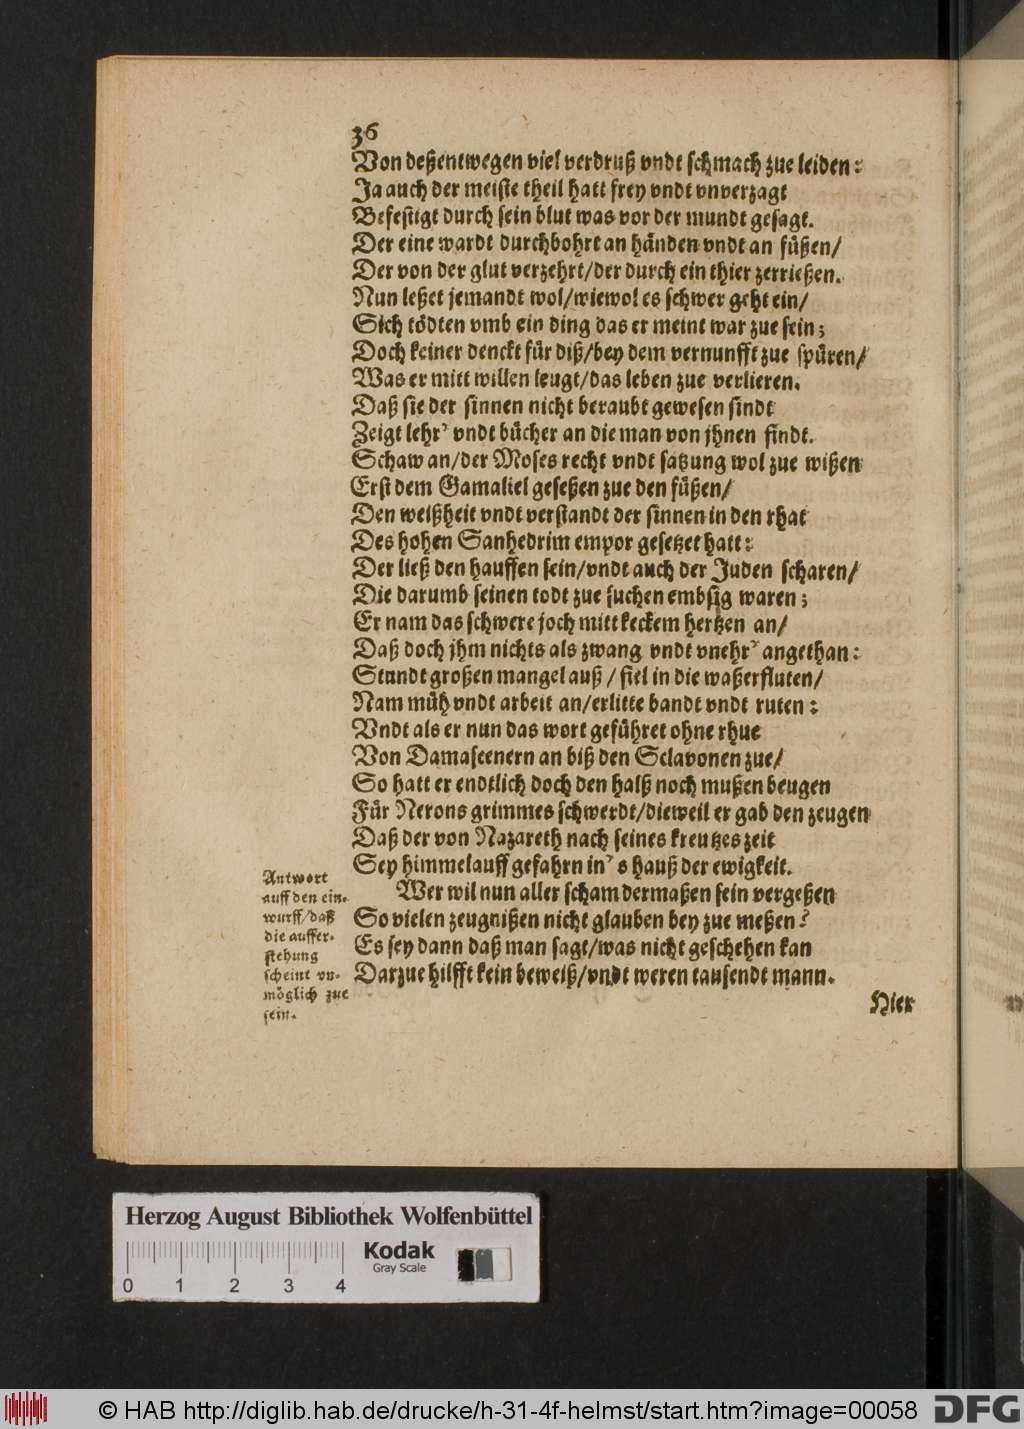 36
Von deßentwegen viel verdruß vndt schmach zue leiden:
Ja auch der meiste theil hatt frey vndt vnverzagt
Befestigt durch sein blut was vor der mundt gesagt.
Der eine wardt durchbohrt an händen vndt an füßen/
Der von der glut verzehrt/der durch ein thier zerrießen.
Nun leßet jemandt wol/wiewol es schwer geht ein/
Sich tödten vmb ein ding das er meint war zue sein;
Doch keiner denckt für diß/bey dem vernunfft zue spüren/
Was er mitt willen leugt/das leben zue verlieren.
Daß sie der sinnen nicht beraubt gewesen sindt
Zeigt lehr' vndt bücher an die man von jhnen findt.
Schaw an/der Moses recht vndt satzung wol zue wißen
Erst dem Gamaliel geseßen zue den füßen/
Den weißheit vndt verstandt der sinnen in den rhat
Des hohen Sanhedrim empor gesetzet hatt:
Der ließ den hauffen sein/vndt auch der Juden scharen/
Die darumb seinen todt zue suchen embsig waren;
Er nam das schwere joch mitt keckem hertzen an/
Daß doch jhm nichts als zwang vndt vnehr' angethan:
Stundt großen mangel auß / fiel in die waßerfluten/
Nam müh vndt arbeit an/erlitte bandt vndt ruten:
Vndt als er nun das wort geführet ohne rhue
Von Damascenern an biß den Sclavonen zue/
So hatt er endtlich doch den halß noch mußen beugen
Für Nerons grimmes schwerdt/dieweil er gab den zeugen
Daß der von Nazareth nach seines kreutzes zeit
Sey himmelauff gefahrn in' s hauß der ewigkeit.
Antwort
auff den ein-
wurff/daß
die auffer-
stehung
scheint vn-
möglich zue
sein.
Wer wil nun aller scham dermaßen sein vergeßen
So vielen zeugnißen nicht glauben bey zue meßen?
Es sey dann daß man sagt/was nicht geschehen kan
Darzue hilfft kein beweiß/vndt weren tausendt mann.
Hier
Herzog August Bibliothek Wolfenbüttel
Kodak
Gray Scale
0 1 2 3 4
© HAB http://diglib.hab.de/drucke/h-31-4f-helmst/start.htm?image=00058
DFG